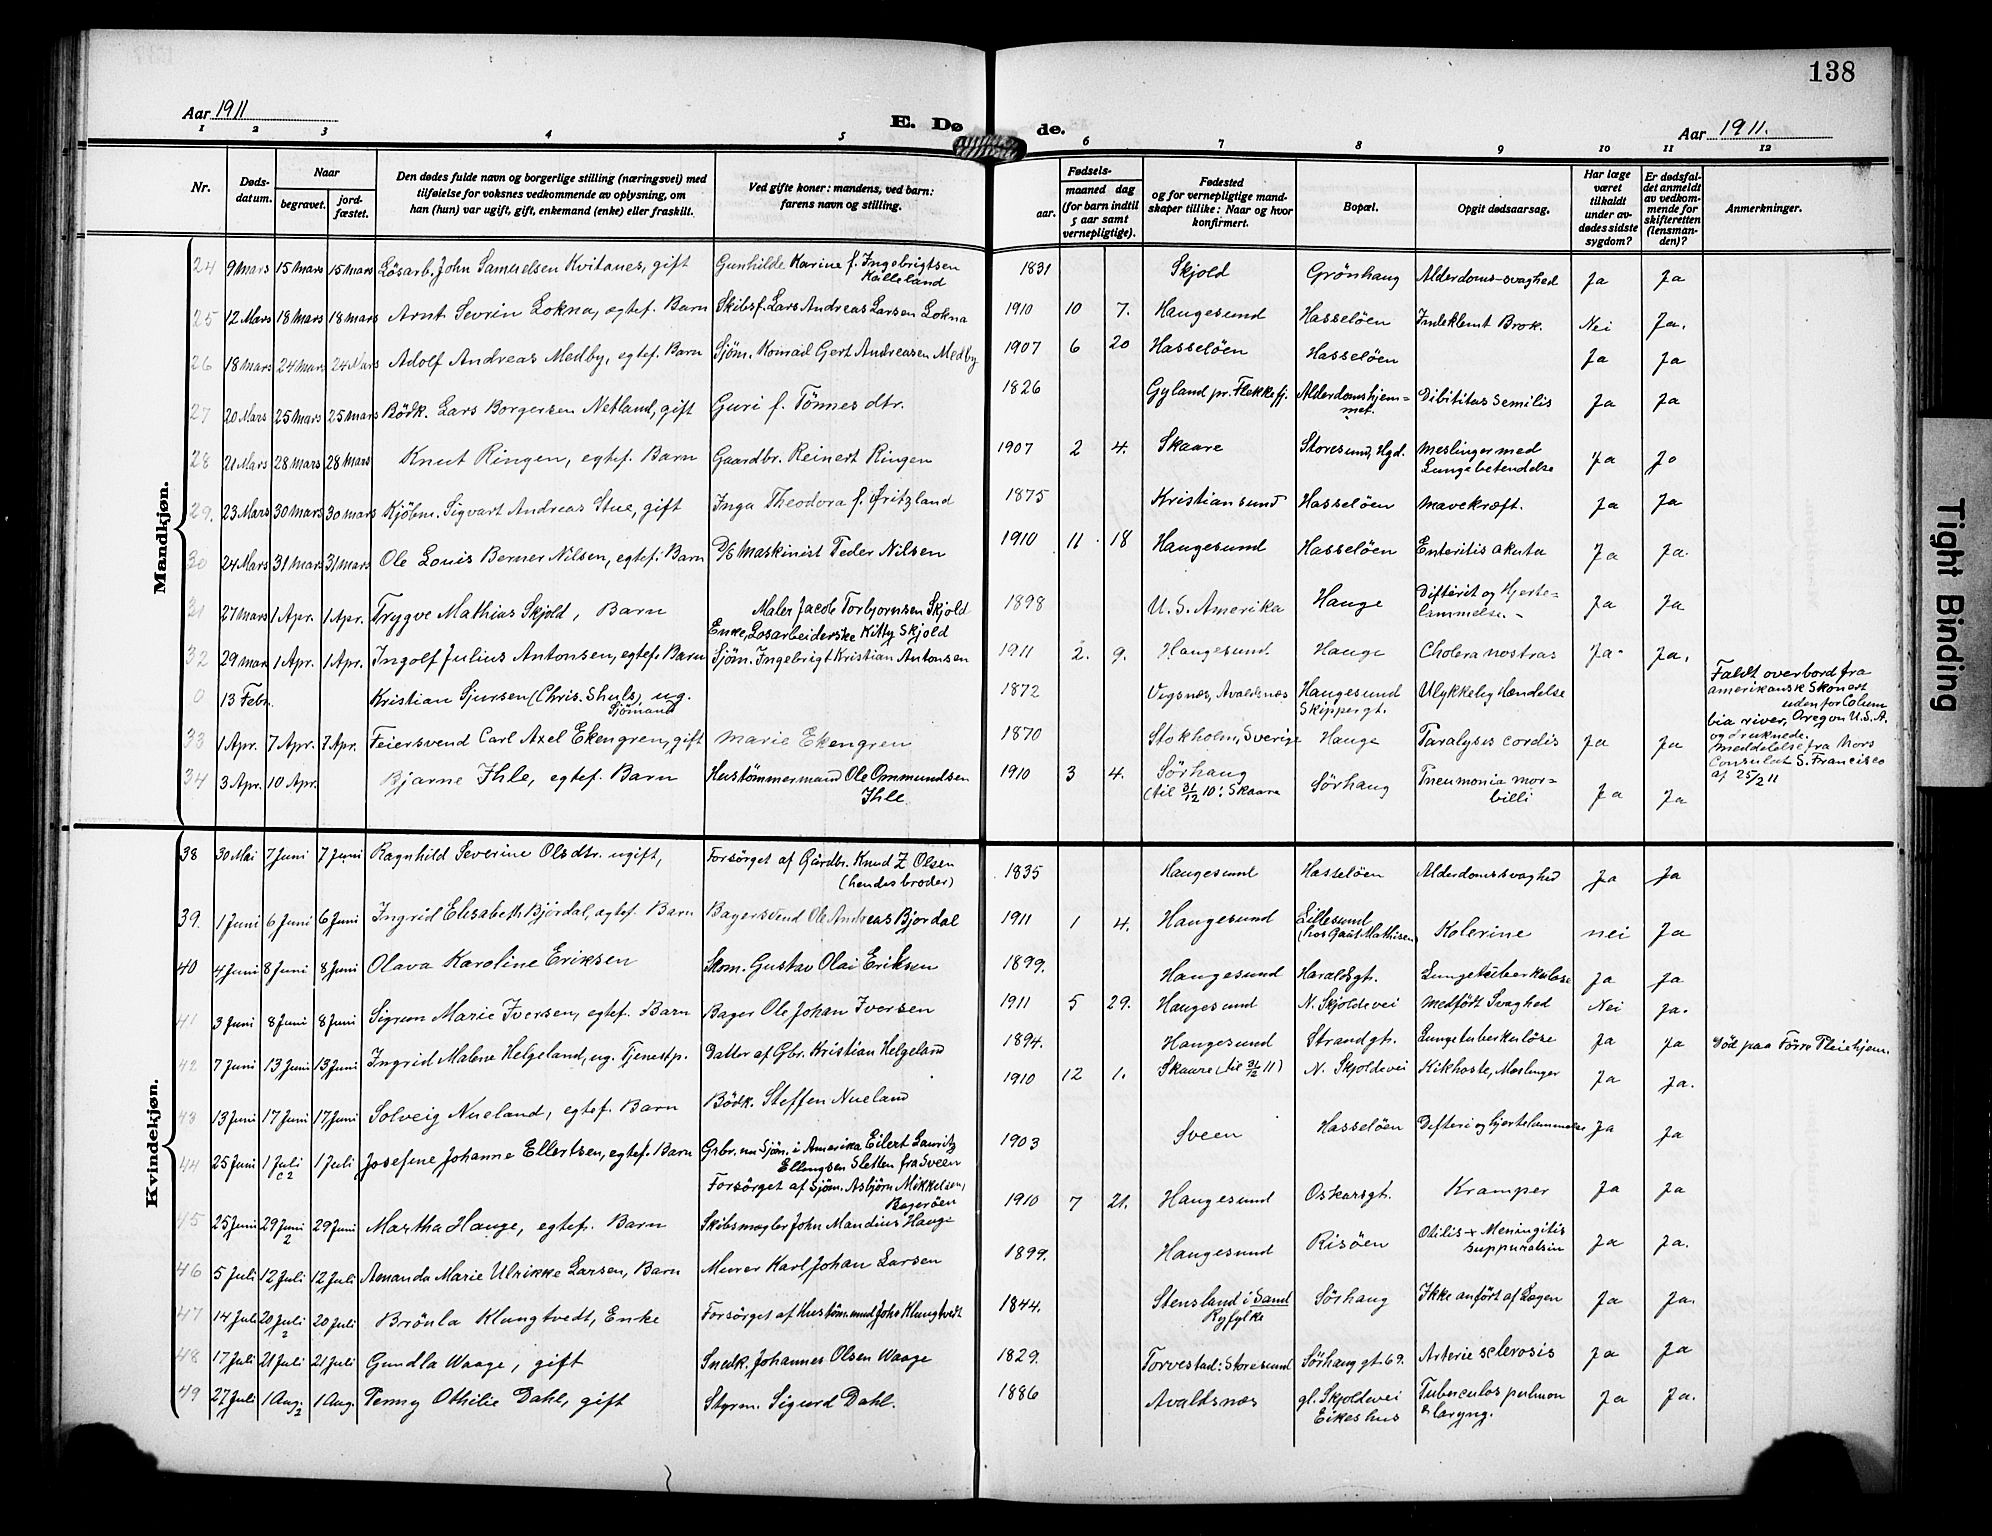 138
Aar 1911
E. Dø de.
Aar 1911.
1 2 3 4 5 6 7 8 9 10 11 12
Nr.
Døds-
datum.
Naar
begravet.
jord-
fæstet.
Den dødes fulde navn og borgerlige stilling (næringsvei) med
tilføielse for voksnes vedkommende av oplysning, om
han (hun) var ugift, gift, enkemand (enke) eller fraskilt.
Ved gifte koner: mandens, ved barn:
farens navn og stilling.
Fødsels-
aar.
maaned dag
(for barn indtil
5 aar samt
vernepligtige).
Fødested
og for vernepligtige mand-
skaper tillike: Naar og hvor
konfirmert.
Bopæl.
Opgit dødsaarsag.
Har læge
været
tilkaldt
under av-
dødes sidste
sygdom?
Er dødsfal-
det anmeldt
av vedkom-
mende for
skifteretten
(lensman-
den)?
Anmerkninger.
Mandkjøn.
24 9 Mars 15 Mars 15 Mars Løsarb. John Samuelsen Kvitanes, gift Gunhilde Karine f. Ingebrigtsen Kalleland 1831 Skjold Grönhaug Alderdoms-svaghed Ja Ja
25 12 Mars 18 Mars 18 Mars Arnt Sevrin Lokna, egtef. Barn Skibsf. Lars Andreas Larsen Lokna 1910 10 7. Haugesund Hasselöen Indeklemt Brok. Nei Ja.
26 18 Mars 24 Mars 24 Mars Adolf Andreas Medby, egtef. Barn Sjöm. Konrad Gert Andreasen Medby 1907 6 20 Hasselöen Hasselöen Ja Ja
27 20 Mars 25 Mars 25 Mars Bödk. Lars Borgersen Netland, gift Guri f. Tönnes dtr. 1826 Gyland pr. Flekkefj. Alderdomshjem=met. Dibititus Semilis Ja Ja
28 21 Mars 28 Mars 28 Mars Knut Ringen, egtef. Barn Gaardbr. Reinert Ringen 1907 2 4. Skaare Storesund, Hgd. Meslinger med Lungebetendelse Ja Ja
29. 23 Mars 30 Mars 30 Mars Kjöbm. Sigvart Andreas Stue, gift Inga Theodora f. Fritzland 1875 Kristiansund Hasselöen Mavekræft. Ja Ja
30 24 Mars 31 Mars 31 Mars Ole Louis Berner Nilsen, egtef. Barn D/S Maskinist Peder Nilsen 1910 11 18 Haugesund Hasselöen Enteritis akuta Ja Ja.
31 27 Mars 1 Apr. 1 Apr. Trygve Mathias Skjold, Barn Maler Jacob Torbjornsen Skjold Enke, Løsarbeiderske Kitty Skjold 1898 U. S. Amerika Hauge Difterit og Hjerte-lammelse. Ja Ja
32 29 Mars 1 Apr. 1 Apr. Ingolf Julius Antonsen, egtef. Barn Sjöm. Ingebrigt Kristian Antonsen 1911 2. 9. Haugesund Hauge Cholera nostras Ja Ja.
0 13 Febr. Kristian Sjursen (Chris. Shuls) ug. Sjömand 1872 Vigsnæs, Avaldsnæs Haugesund Skippergt. Ulykkelig Hændelse
Faldt overbord fra
amerikansk Skonert
udenfor Colum
bia river, Oregon U.S.A.
og druknede.
Meddelelse fra Nors
Consulat S. Francisco
af 25/2 11
33 1 Apr. 7 Apr. 7 Apr. Feiersvend Carl Axel Ekengren, gift Marie Ekengren 1870 Stokholm, Sverige Hauge Paralysis cordis Ja Ja
34 3 Apr. 10 Apr. Bjarne Ihle, egtef. Barn Hustömmermand Ole Ommundsen Ihle. 1910 3 4. Sörhaug (til 31/12 10: Skaare Sörhaug Pneumonia mor=billi Ja Ja
Kvindekjøn.
38 30 Mai 7 Juni 7 Juni Ragnhild Severine Olsdtr. ugift, Forsörget af Gårdbr. Knud Z Olsen (hendes broder) 1835 Haugesund Hasselöen Alderdomssvaghed Ja Ja
39. 1 Juni 6 Juni 6 Juni Ingrid Elisabeth Björdal, egtef. Barn Bagersvend Ole Andreas Bjordal 1911 1 4. Haugesund Lillesund (hos Gaut Mathisen) Kolerine nei Ja
40 4 Juni 8 Juni 8 Juni Olava Karoline Eriksen Skom. Gustav Olai Eriksen 1899. Haugesund Haraldsgt. Lungetuberkulose Ja Ja
41 3 Juni 8 Juni 8 Juni Sigrun Marie Iversen, egtef. Barn Bager Ole Johan Iversen 1911 5 29. Haugesund N. Skjoldevei Medfödt Svaghed Nei Ja.
42 7 Juni 13 Juni 13 Juni Ingrid Malene Helgeland, ug. Tjenestp. Datter af Gbr. Kristian Helgeland 1894. Haugesund Strandgt. Lungetuberkulöse Ja Ja Död paa Förre Pleiehjem.
43 13 Juni 17 Juni 17 Juni Solveig Nueland, egtef. Barn Bödk. Steffen Nueland 1910 12 1. Skaare (til 31/12 11) N. Skjoldevei Kikhoste, Meslinger Ja Ja.
44 25 Juni 1 Juli 1 Juli Josefine Johanne Ellertsen, egtef. Barn Grbr. nu Sjöm. i Amerika Eilert Lauritz Ellingsen Sletten fra Sveen Forsörget af Sjöm. Asbjörn Mikkelsen, Bogeröen 1903 Sveen Hasselöen Difteri og hjertelammelse Ja Ja
45 25 Juni 29 Juni 29 Juni Martha Hauge, egtef. Barn Skibsmægler John Mandius Hauge 1910 7 21. Haugesund Oskarsgt. Kramper Ja Ja
46 5 Juli 12 Juli 12 Juli Amanda Marie Ulrikke Larsen, Barn Murer Karl Johan Larsen 1899. Haugesund Risöen Otilis + Meningitis suppuratsin Ja Ja.
47 14 Juli 20 Juli 20 Juli Brönla Klungtvedt, Enke Forsörget af Hustöm.mand John Klungtvedt 1844. Stensland i Sand Ryfylke Sörhaug Ikke anfört af Lægen Ja Ja.
48 17 Juli 21 Juli 21 Juli Gundla Waage, gift Snedk. Johannes Olsen Waage 1829. Torvestad: Storesund Sörhauggt. 69. Arterie sclerosis Ja Ja
49 27 Juli 1 Aug. 1 Aug. Penny Othilie Dahl, gift Styrm. Sigurd Dahl. 1886 Avaldsnæs gl. Skjoldevei Eikeshus Tuberculos pulmon & laryng. Ja Ja.
Tight Binding